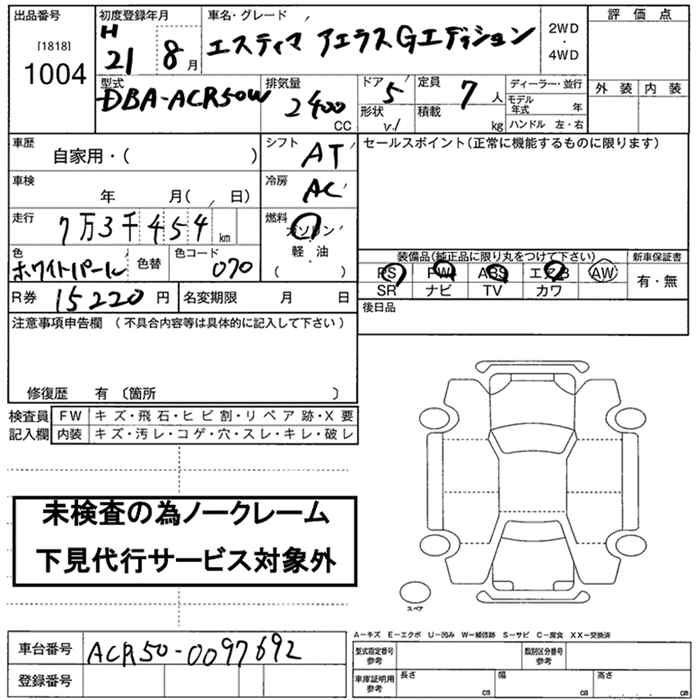 出品番号 初度登録年月 車名・グレード 評価点
[1818] H
1004 21 8月 エスティマ アエラスGエディション 2WD・4WD
外装 内装
型式 排気量 ドア 定員 ディーラー・並行
DBA-ACR50W 2400 CC 5 7人 モデル年式 年
形状 積載 kg ハンドル 左・右
車歴 シフト セールスポイント(正常に機能するものに限ります)
自家用・( ) AT
車検 冷房
年 月( 日) AC
走行 燃料
7万3千454km ガソリン・軽・油 ( )
色 色替 色コード 装備品(純正品に限り丸をつけて下さい) 新車保証書
ホワイトパール 070 PS PW ABS エアB AW 有・無
SR ナビ TV カワ
R券 15220円 名変期限 月 日 後日品
注意事項申告欄 (不具合内容等は具体的に記入して下さい)
修復歴 有 〔箇所 〕
検査員 FW キズ・飛石・ヒビ割・リペア跡・X要
記入欄 内装 キズ・汚レ・コゲ・穴・スレ・キレ・破レ
未検査の為ノークレーム
下見代行サービス対象外
スペア
A−キズ E−エクボ U−凹み W−補修跡 S−サビ C−腐食 XX−交換済
車台番号 ACR50-0097692 型式指定番号 参考 類別区分番号 参考
登録番号 車庫証明用 参考 長さ cm 幅 cm 高さ cm